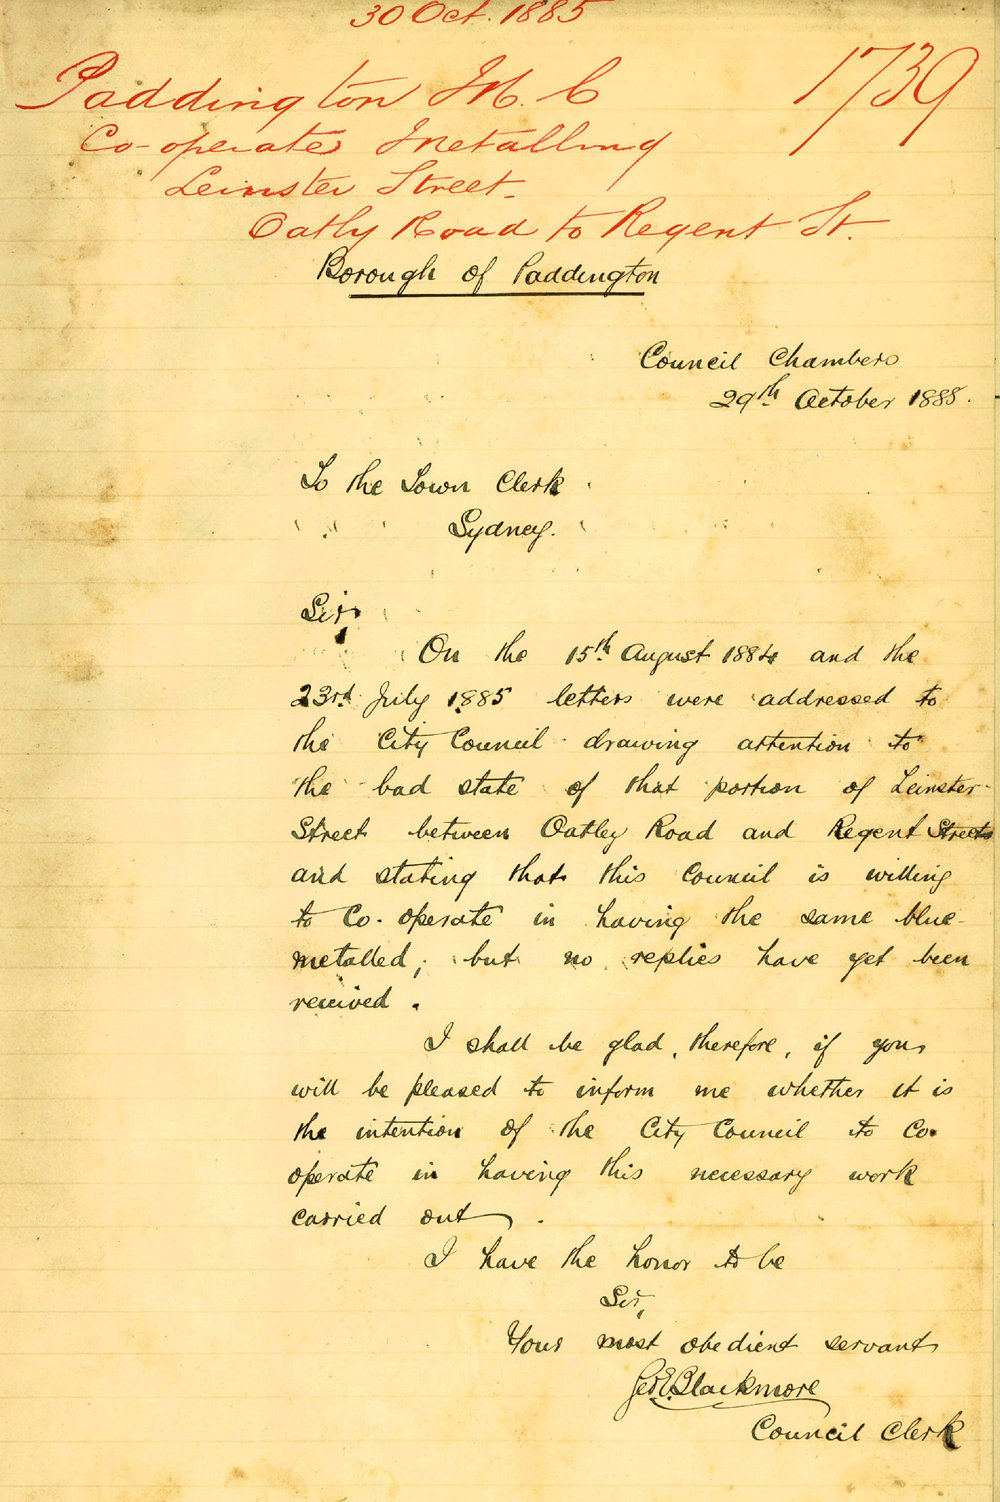 30 Oct. 1885
Paddington M. C 1739
Co-operate Metalling
Leinster Street.
Oatly Road to Regent St.
Borough of Paddington
Council Chambers
29th October 1885.
To the Town Clerk
Sydney.
Sir,
On the 15th August 1884 and the
23rd July 1885 letters were addressed to
the City Council drawing attention to
the bad state of that portion of Leinster
Street between Oatley Road and Regent Streets
and stating that this Council is willing
to Co-operate in having the same blue
metalled; but no replies have yet been
received.
I shall be glad, therefore, if you
will be pleased to inform me whether it is
the intention of the City Council to Co-
operate in having this necessary work
carried out.
I have the honor to be
Sir,
Your most obedient servant
Geo. E. Blackmore
Council Clerk